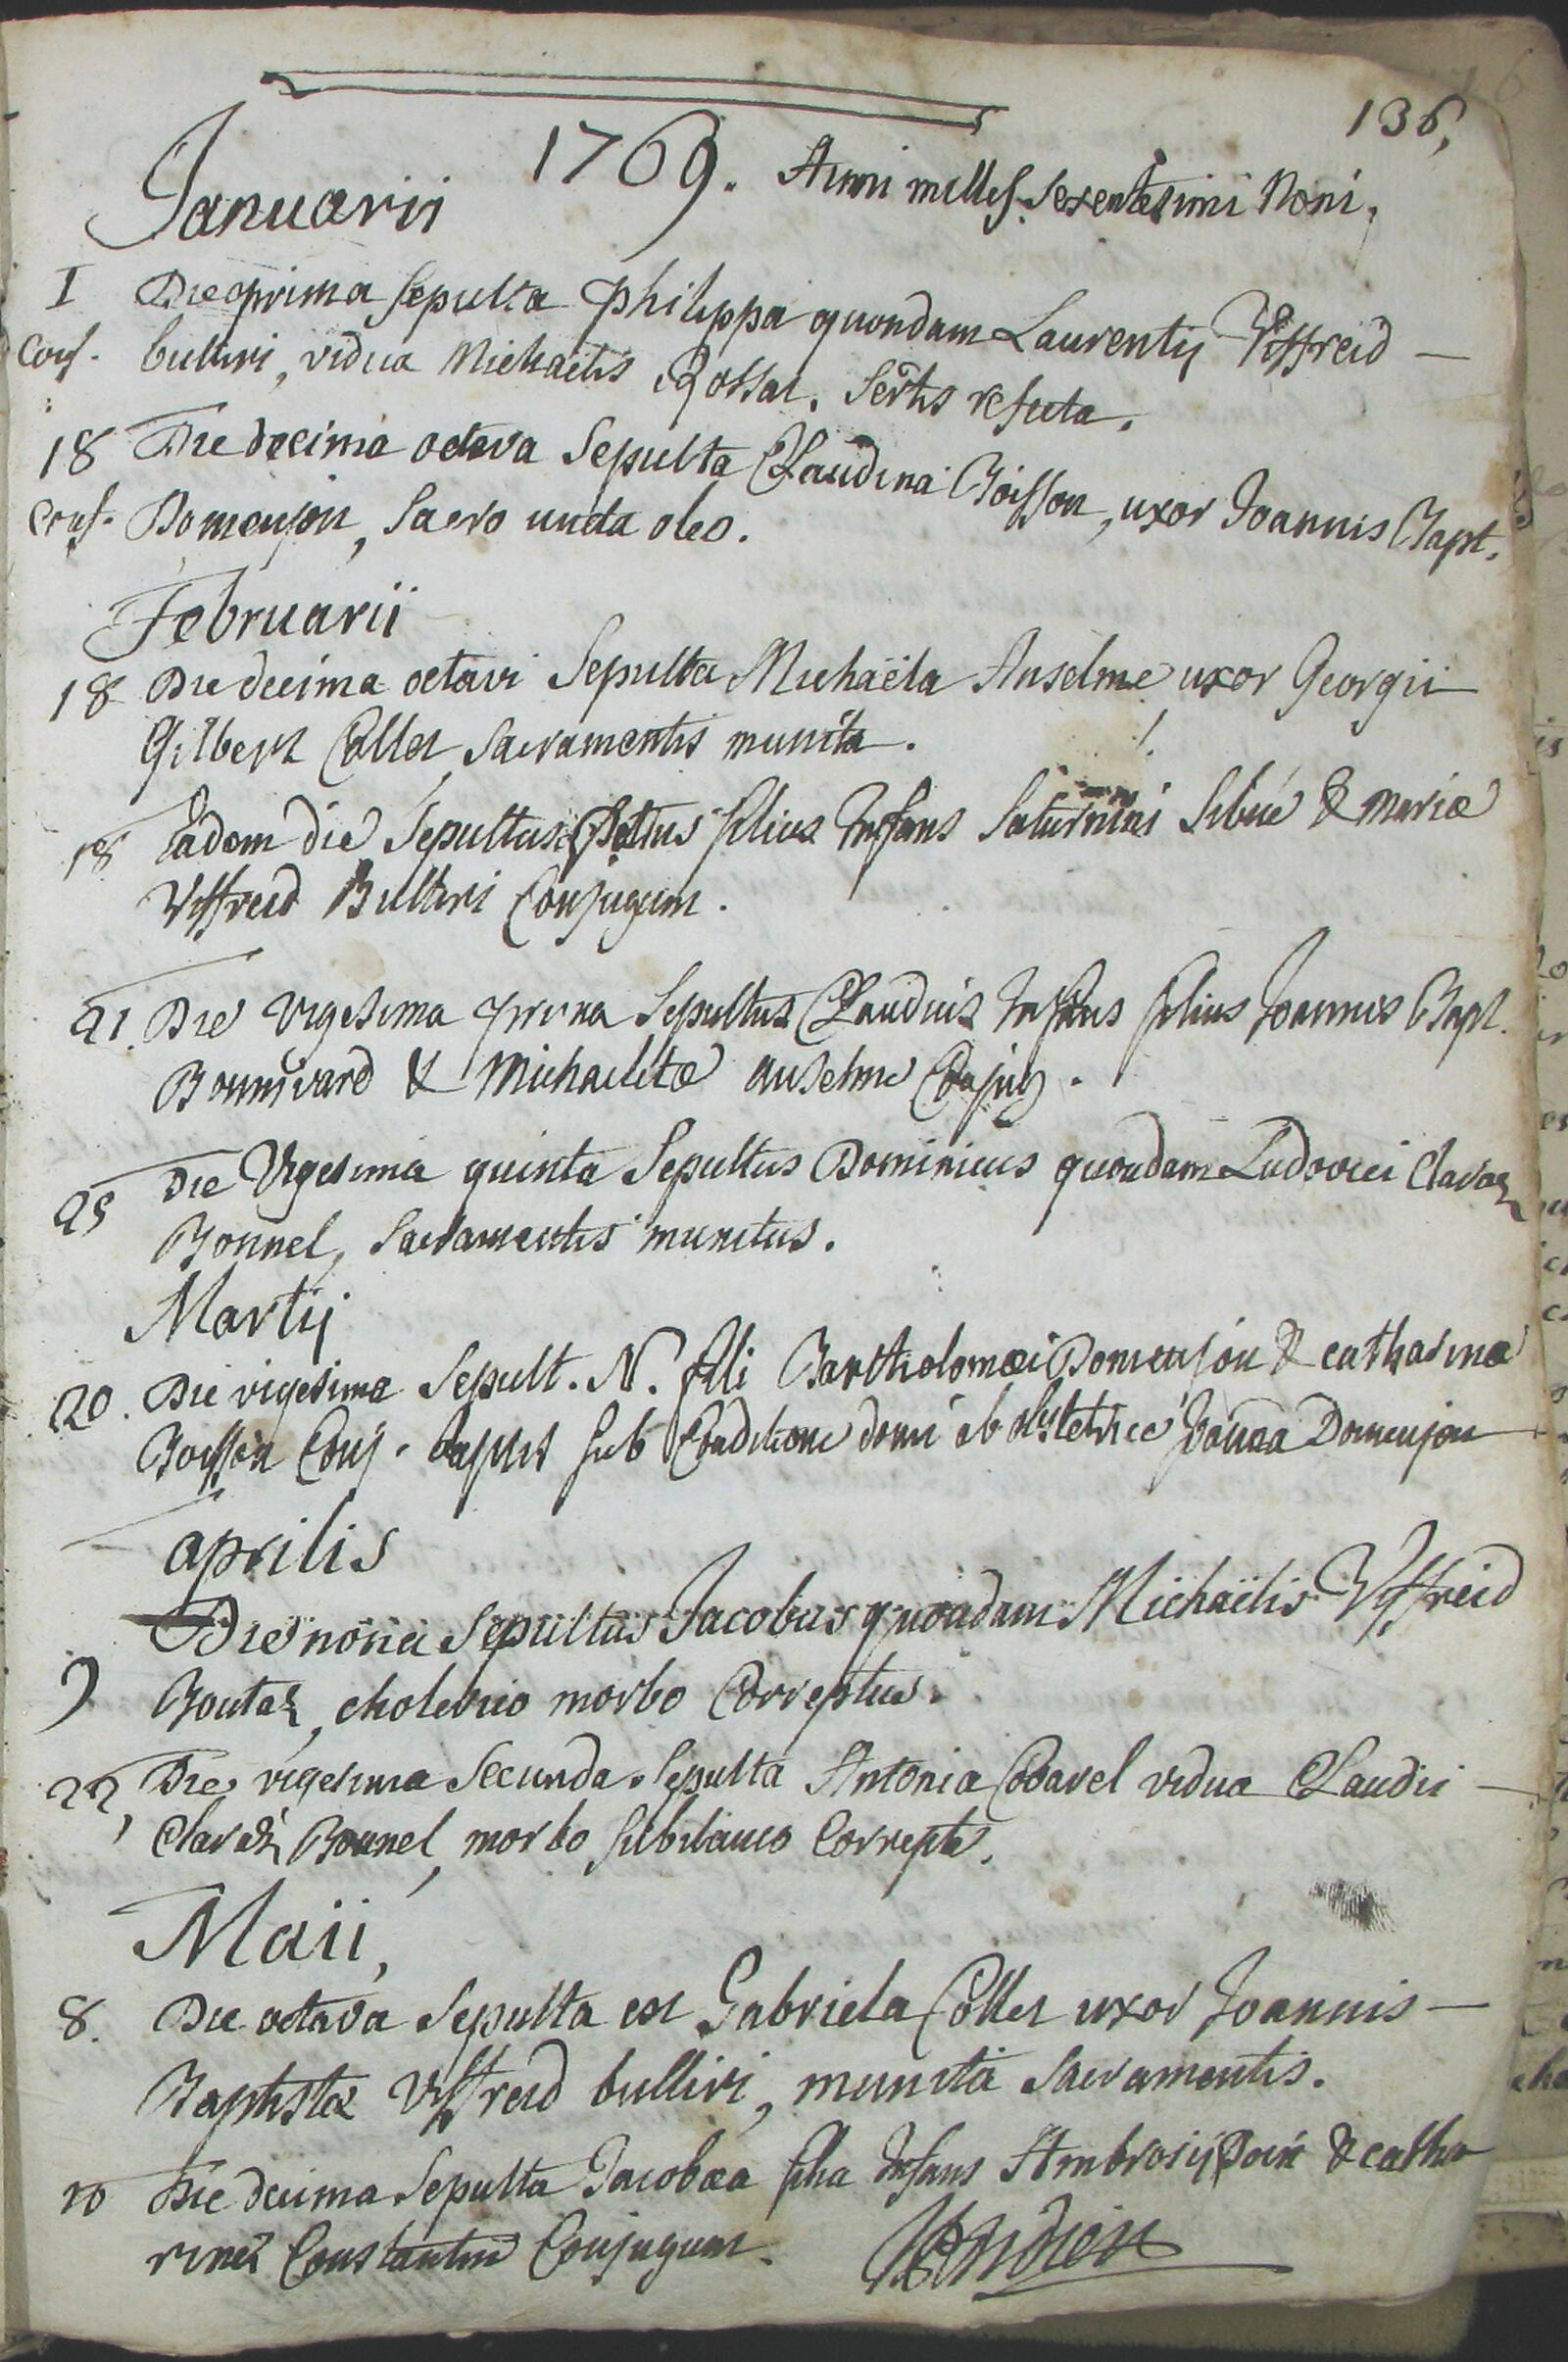 136,
Januarii 1769. Anni milles. sexentesimi Noni,
I Die prima sepulta Philippa quondam Laurentij Viffreid —
Conf. bulliri, vidua Michaëlis Rossat. Sctis refecta.
18 Die decima octava Sepulta Claudina Boisson, uxor Joannis Bapt.
Conf. Domenjon, Sacro uncta oleo.
Februarii
18 Die decima octavi Sepulta Michaëla Anselme uxor Georgii
Gilbert Collet, Sacramentis munita.
18 Eadem die Sepultus Petrus filius Infans Saturnini Sibué & Mariæ
Viffreid Bulliri Conjugum.
21. Die Vigesima prima Sepultus Claudius Infans filius Joannis Bapt.
Bonnivard & Michaelitæ anselme Conjug.
25 Die Vigesima quinta Sepultus Dominicus quondam Ludovici Claraz
Bonnel, Sacramentis munitus.
Martij
20. Die vigesima Sepult. N. filii Bartholomæi Domenjon & catharinæ
Boisson Conj. baptis sub Conditione domi ab obstetrice Domenjon
aprilis
9 Die nona Sepultus Jacobus quondam Michaëlis Viffreid
Boutaz, cholerico morbo Correptus.
22, Die vigesima Secunda Sepulta Antonia Covarel vidua Claudii —
Claraz Bonnel, morbo subitaneo Correpta.
Maii,
8. Die octava Sepulta est Gabriela Collet uxor Joannis —
Baptistæ Viffreid bulliri, munita Sacramentis.
10 Die decima Sepulta Jacobæa filia Infans Ambrosij & catha
rinæ Constantin Conjugum.